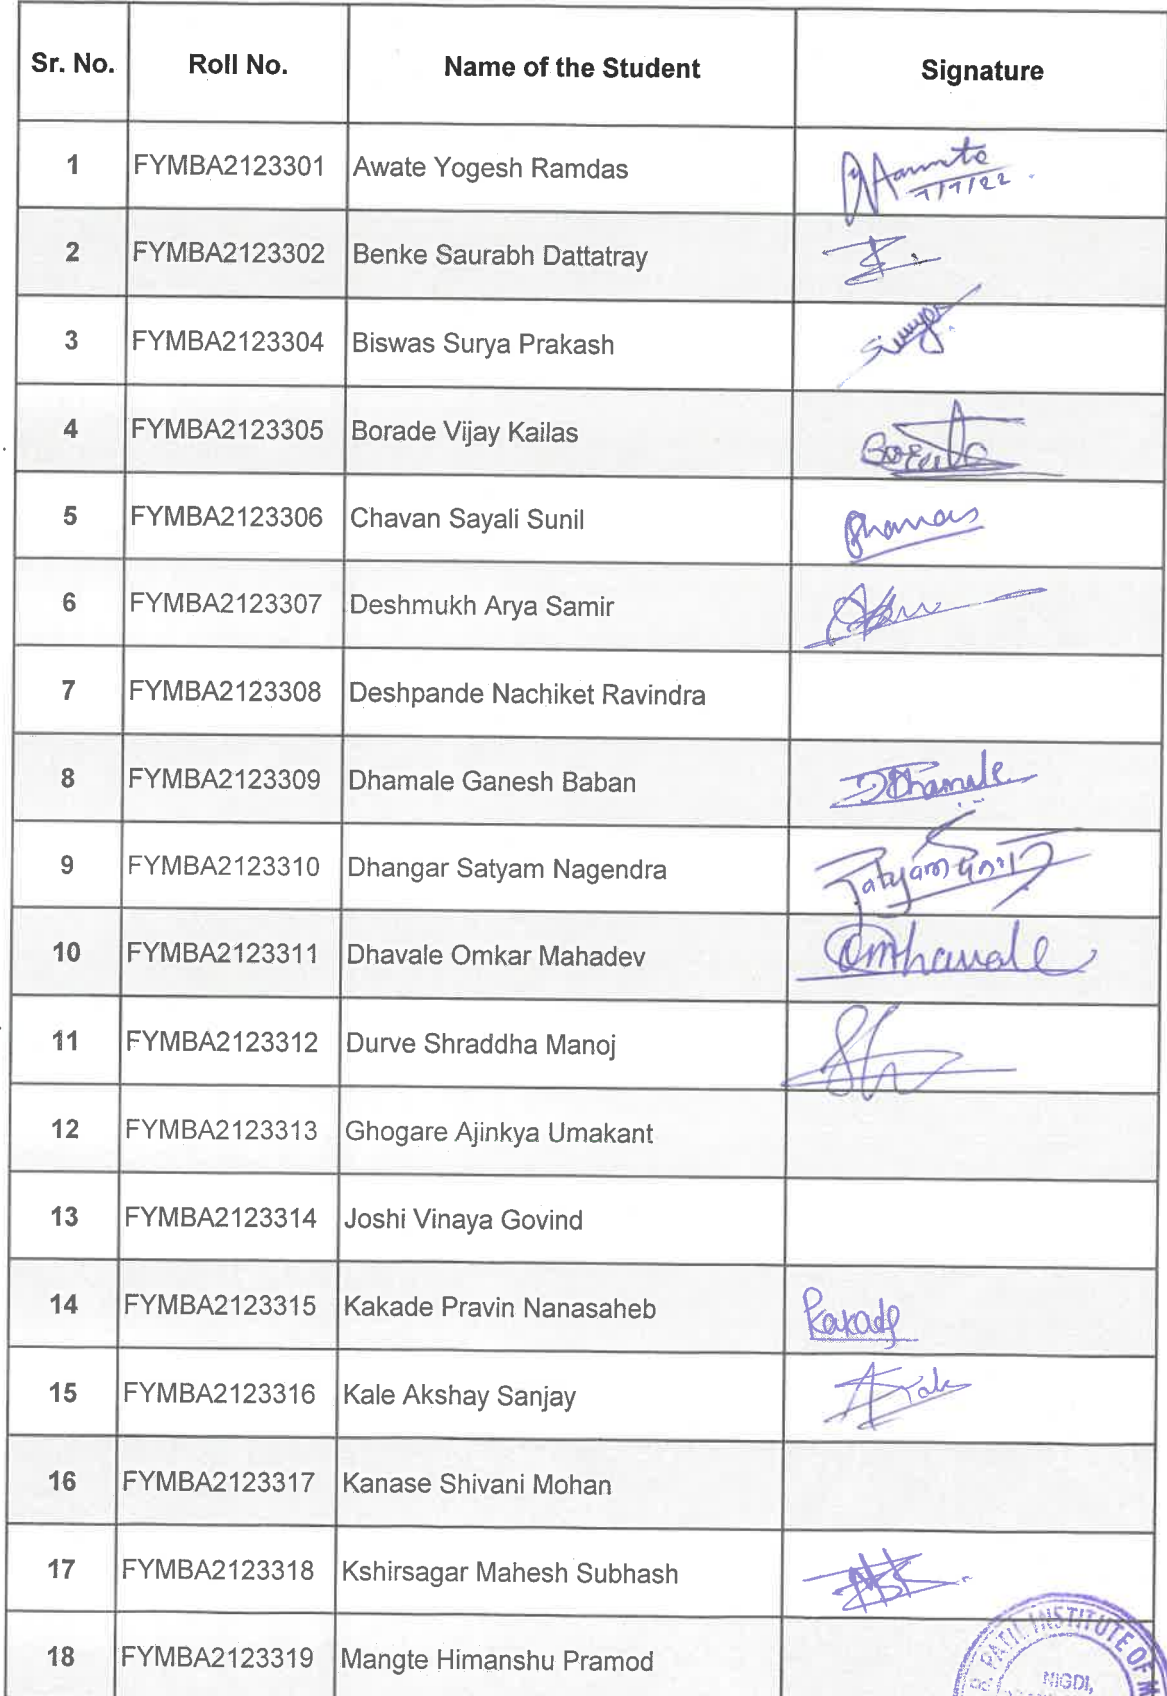 Sr. No. Roll No. Name of the Student Signature
1 FYMBA2123301 Awate Yogesh Ramdas
7/7/22
2 FYMBA2123302 Benke Saurabh Dattatray
3 FYMBA2123304 Biswas Surya Prakash
4 FYMBA2123305 Borade Vijay Kailas
5 FYMBA2123306 Chavan Sayali Sunil
6 FYMBA2123307 Deshmukh Arya Samir
7 FYMBA2123308 Deshpande Nachiket Ravindra
8 FYMBA2123309 Dhamale Ganesh Baban Dhamale
9 FYMBA2123310 Dhangar Satyam Nagendra
10 FYMBA2123311 Dhavale Omkar Mahadev
11 FYMBA2123312 Durve Shraddha Manoj
12 FYMBA2123313 Ghogare Ajinkya Umakant
13 FYMBA2123314 Joshi Vinaya Govind
14 FYMBA2123315 Kakade Pravin Nanasaheb Kakade
15 FYMBA2123316 Kale Akshay Sanjay
16 FYMBA2123317 Kanase Shivani Mohan
17 FYMBA2123318 Kshirsagar Mahesh Subhash
18 FYMBA2123319 Mangte Himanshu Pramod
PATIL INSTITUTE OF M
NIGDI,